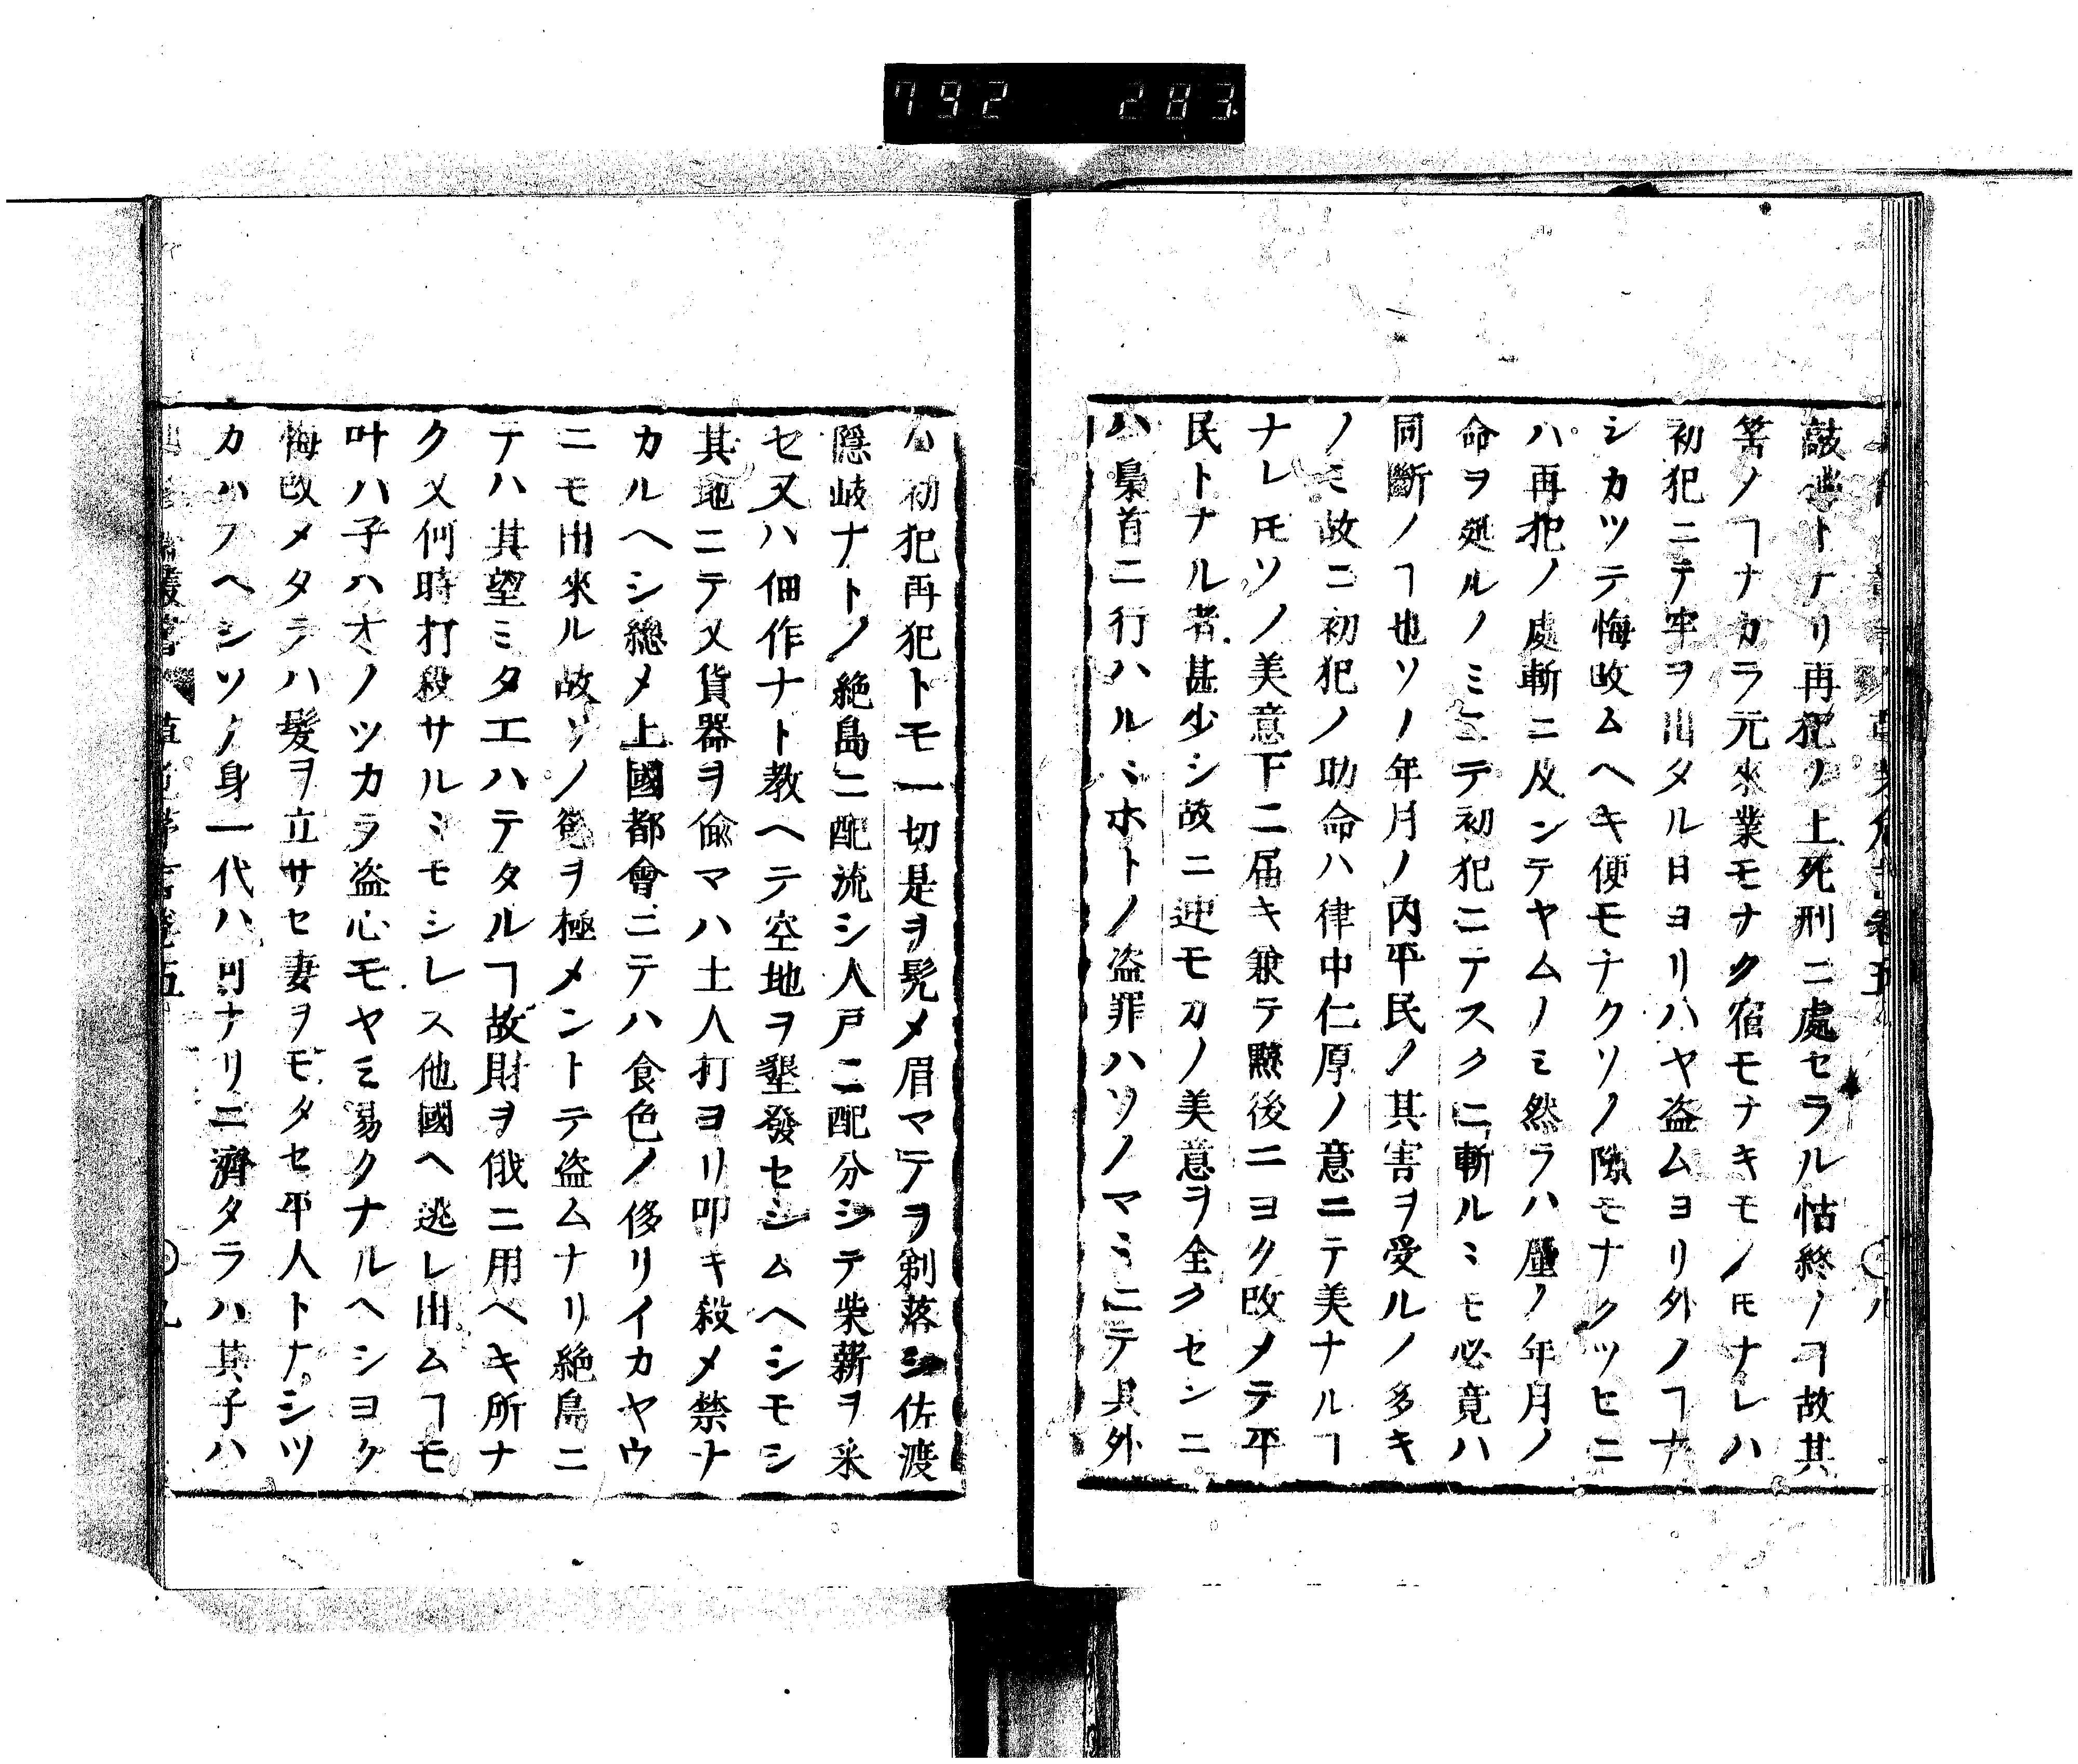 792 283
敲逃トナリ再犯ノ上死刑ニ處セラル怙終ノヿ故其
筈ノヿナカラ元來業モナク宿モナキモノ𪜈ナレハ
初犯ニテ牢ヲ出タル日ヨリハヤ盗ムヨリ外ノヿナ
シカツテ悔改ムヘキ便モナクソノ隙モナクツヒニ
ハ再犯ノ處斬ニ及ンテヤムノミ然ラハ釐ノ年月ノ
命ヲ延ルノミニテ初犯ニテスクニ斬ルミモ必竟ハ
同斷ノヿ也ソノ年月ノ内平民ノ其害ヲ受ルノ多キ
ノミ故ニ初犯ノ助命ハ律中仁厚ノ意ニテ美ナルヿ
ナレ𪜈ソノ美意下ニ届キ兼テ黥後ニヨク改メテ平
民トナル者甚少シ故ニ迚モカノ美意ヲ全クセンニ
ハ梟首ニ行ハルミホトノ盗罪ハソノマミニテ其外
ハ初犯再犯トモ一切是ヲ髠メ眉マテヲ剃落シ佐渡
隱岐ナトノ絶島ニ配流シ人戸ニ配分シテ柴薪ヲ采
セ又ハ佃作ナト教ヘテ空地ヲ墾發セシムヘシモシ
其地ニテ又貨器ヲ偸マハ土人打ヨリ叩キ殺メ禁ナ
カルヘシ總メ上國都會ニテハ食色ノ侈リイカヤウ
ニモ出來ル故ソノ慾ヲ極メントテ盗ムナリ絶島ニ
テハ其望ミタエハテタルヿ故財ヲ俄ニ用ヘキ所ナ
ク又何時打殺サルミモシレス他國ヘ逃レ出ムヿモ
叶ハ子ハオノツカラ盗心モヤミ易クナルヘシヨク
悔改メタラハ髪ヲ立サセ妻ヲモタセ平人トナシツ
カハスヘシソノ身一代ハ可ナリニ濟タラハ其子ハ